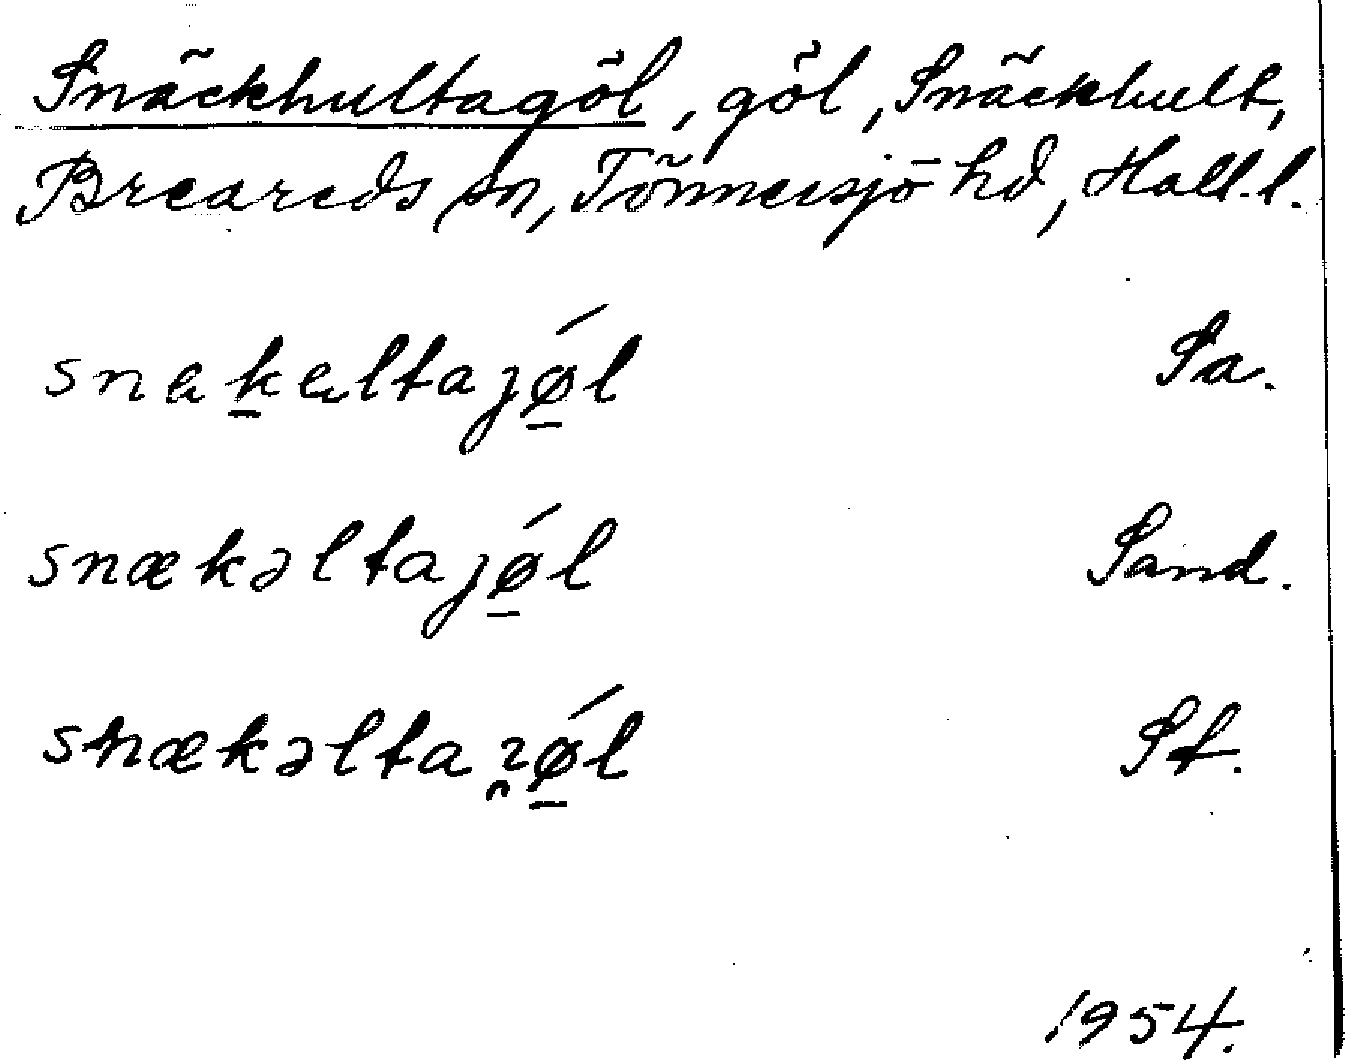 Snäckhultagöl, göl, Snäckhult,
Breareds sn, Tönnersjö hd, Hall.l.
snɐk̠ɐltajǿ̠l Sa.
snækəltajǿ̠l Sand.
snækəlta ǿ̠l St.
1954.